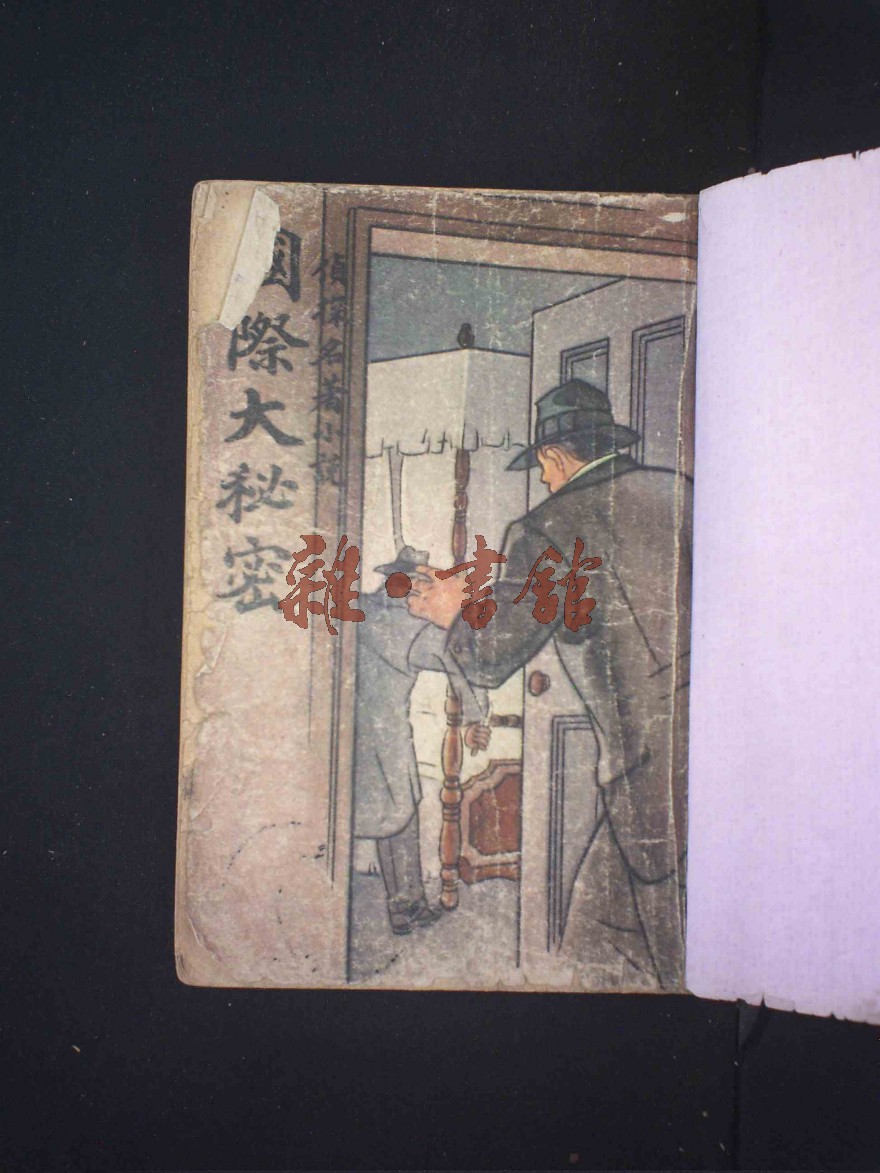 偵探名著小說
國際大秘密
雜·書館